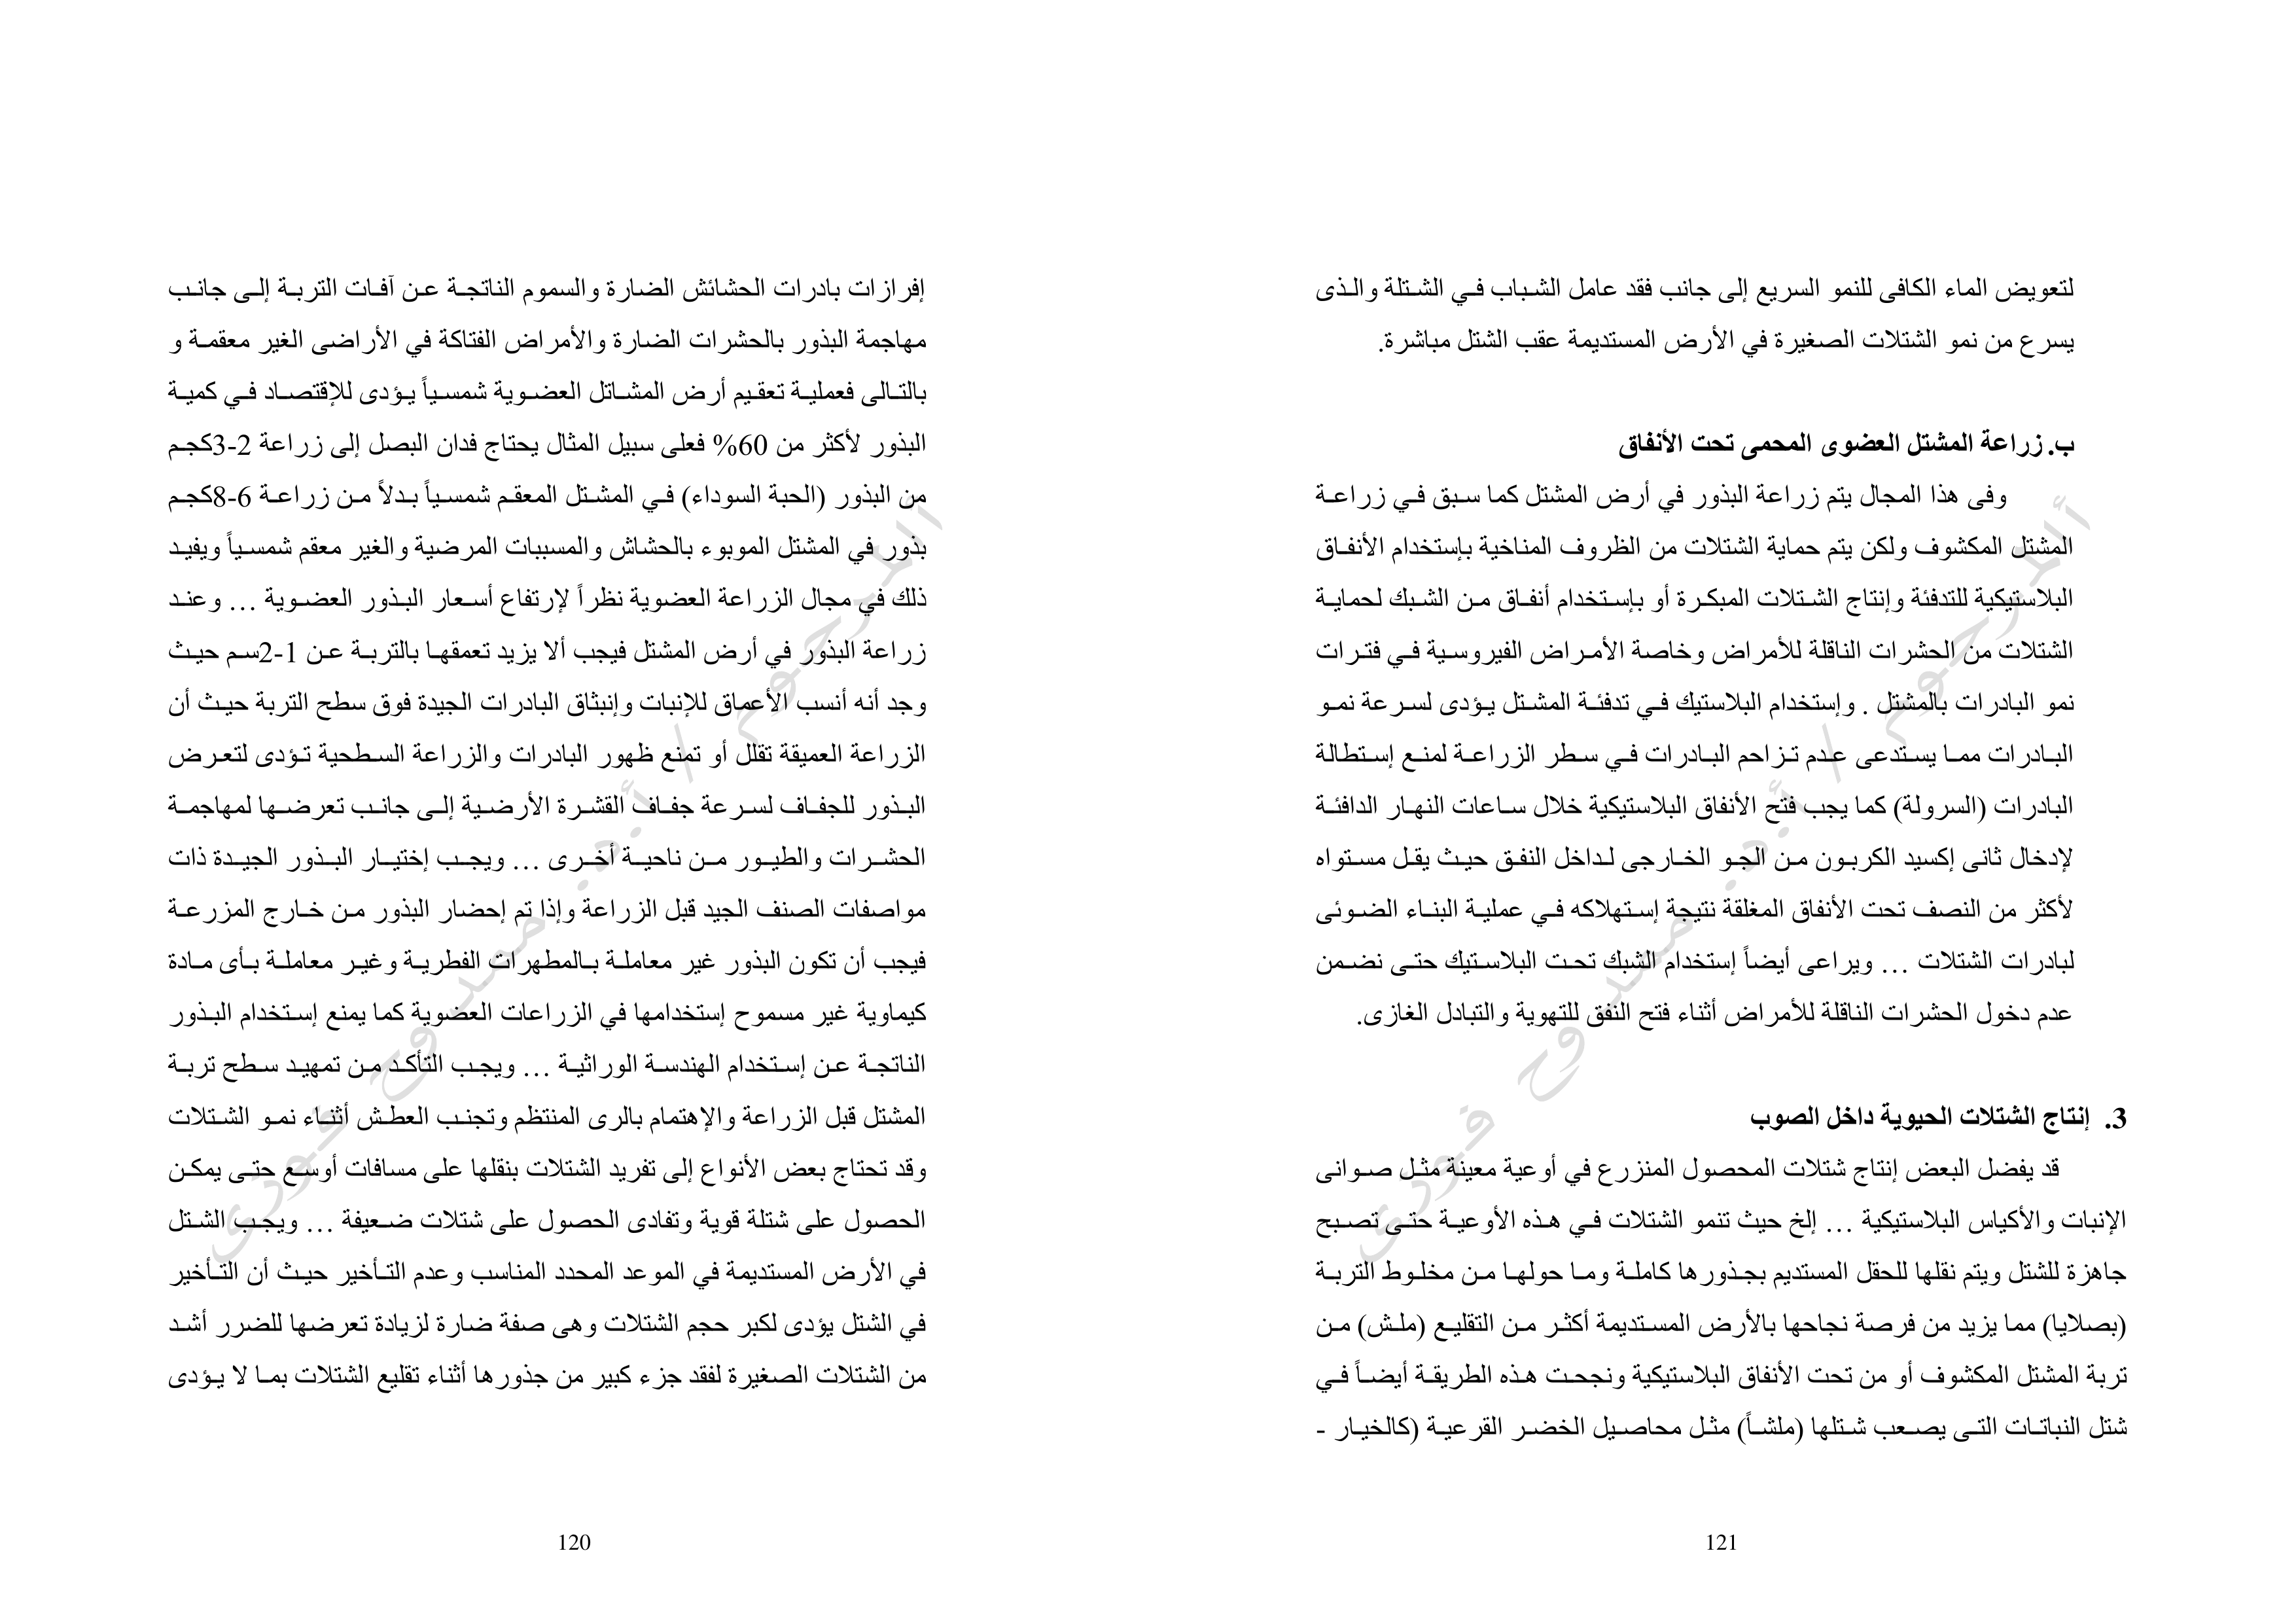 إفرازات بادرات الحشائش الضارة والسموم الناتجة عن آفات التربة إلى جانب
مهاجمة البذور بالحشرات الضارة والأمراض الفتاكة في الأراضى الغير معقمة و
بالتالى فعملية تعقيم أرض المشاتل العضوية شمسياً يؤدى للإقتصاد في كمية
البذور لأكثر من 60% فعلى سبيل المثال يحتاج فدان البصل إلى زراعة 2-3كجم
من البذور (الحبة السوداء) في المشتل المعقم شمسياً بدلاً من زراعة 6-8كجم
بذور في المشتل الموبوء بالحشاش والمسببات المرضية والغير معقم شمسياً ويفيد
ذلك في مجال الزراعة العضوية نظراً لإرتفاع أسعار البذور العضوية ... وعند
زراعة البذور في أرض المشتل فيجب ألا يزيد تعمقها بالتربة عن 1-2سم حيث
وجد أنه أنسب الأعماق للإنبات وإنبثاق البادرات الجيدة فوق سطح التربة حيث أن
الزراعة العميقة تقلل أو تمنع ظهور البادرات والزراعة السطحية تؤدى لتعرض
البذور للجفاف لسرعة جفاف القشرة الأرضية إلى جانب تعرضها لمهاجمة
الحشرات والطيور من ناحية أخرى ... ويجب إختيار البذور الجيدة ذات
مواصفات الصنف الجيد قبل الزراعة وإذا تم إحضار البذور من خارج المزرعة
فيجب أن تكون البذور غير معاملة بالمطهرات الفطرية وغير معاملة بأى مادة
كيماوية غير مسموح إستخدامها في الزراعات العضوية كما يمنع إستخدام البذور
الناتجة عن إستخدام الهندسة الوراثية ... ويجب التأكد من تمهيد سطح تربة
المشتل قبل الزراعة والإهتمام بالرى المنتظم وتجنب العطش أثناء نمو الشتلات
وقد تحتاج بعض الأنواع إلى تفريد الشتلات بنقلها على مسافات أوسع حتى يمكن
الحصول على شتلة قوية وتفادى الحصول على شتلات ضعيفة ... ويجب الشتل
في الأرض المستديمة في الموعد المحدد المناسب وعدم التأخير حيث أن التأخير
في الشتل يؤدى لكبر حجم الشتلات وهى صفة ضارة لزيادة تعرضها للضرر أشد
من الشتلات الصغيرة لفقد جزء كبير من جذورها أثناء تقليع الشتلات بما لا يؤدى
120
المرحوم / أ.د. ممدوح فوزى
لتعويض الماء الكافى للنمو السريع إلى جانب فقد عامل الشباب في الشتلة والذى
يسرع من نمو الشتلات الصغيرة في الأرض المستديمة عقب الشتل مباشرة.
ب. زراعة المشتل العضوى المحمى تحت الأنفاق
وفى هذا المجال يتم زراعة البذور في أرض المشتل كما سبق في زراعة
المشتل المكشوف ولكن يتم حماية الشتلات من الظروف المناخية بإستخدام الأنفاق
البلاستيكية للتدفئة وإنتاج الشتلات المبكرة أو بإستخدام أنفاق من الشبك لحماية
الشتلات من الحشرات الناقلة للأمراض وخاصة الأمراض الفيروسية في فترات
نمو البادرات بالمشتل . وإستخدام البلاستيك في تدفئة المشتل يؤدى لسرعة نمو
البادرات مما يستدعى عدم تزاحم البادرات في سطر الزراعة لمنع إستطالة
البادرات (السرولة) كما يجب فتح الأنفاق البلاستيكية خلال ساعات النهار الدافئة
لإدخال ثانى إكسيد الكربون من الجو الخارجى لداخل النفق حيث يقل مستواه
لأكثر من النصف تحت الأنفاق المغلقة نتيجة إستهلاكه في عملية البناء الضوئى
لبادرات الشتلات ... ويراعى أيضاً إستخدام الشبك تحت البلاستيك حتى نضمن
عدم دخول الحشرات الناقلة للأمراض أثناء فتح النفق للتهوية والتبادل الغازى.
3. إنتاج الشتلات الحيوية داخل الصوب
قد يفضل البعض إنتاج شتلات المحصول المنزرع في أوعية معينة مثل صوانى
الإنبات والأكياس البلاستيكية ... إلخ حيث تنمو الشتلات في هذه الأوعية حتى تصبح
جاهزة للشتل ويتم نقلها للحقل المستديم بجذورها كاملة وما حولها من مخلوط التربة
(بصلايا) مما يزيد من فرصة نجاحها بالأرض المستديمة أكثر من التقليع (ملش) من
تربة المشتل المكشوف أو من تحت الأنفاق البلاستيكية ونجحت هذه الطريقة أيضاً في
شتل النباتات التى يصعب شتلها (ملشاً) مثل محاصيل الخضر القرعية (كالخيار -
121
المرحوم / أ.د. ممدوح فوزى